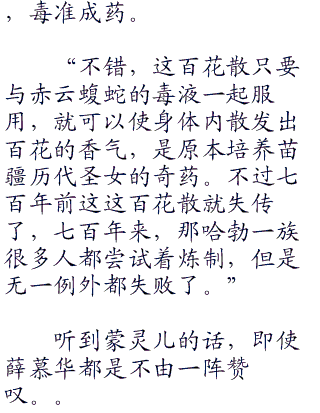 ，毒准成药。
“不错，这百花散只要
与赤云蝮蛇的毒液一起服
用，就可以使身体内散发出
百花的香气，是原本培养苗
疆历代圣女的奇药。不过七
百年前这这百花散就失传
了，七百年来，那哈勃一族
很多人都尝试着炼制，但是
无一例外都失败了。”
听到蒙灵儿的话，即使
薛慕华都是不由一阵赞
叹。。